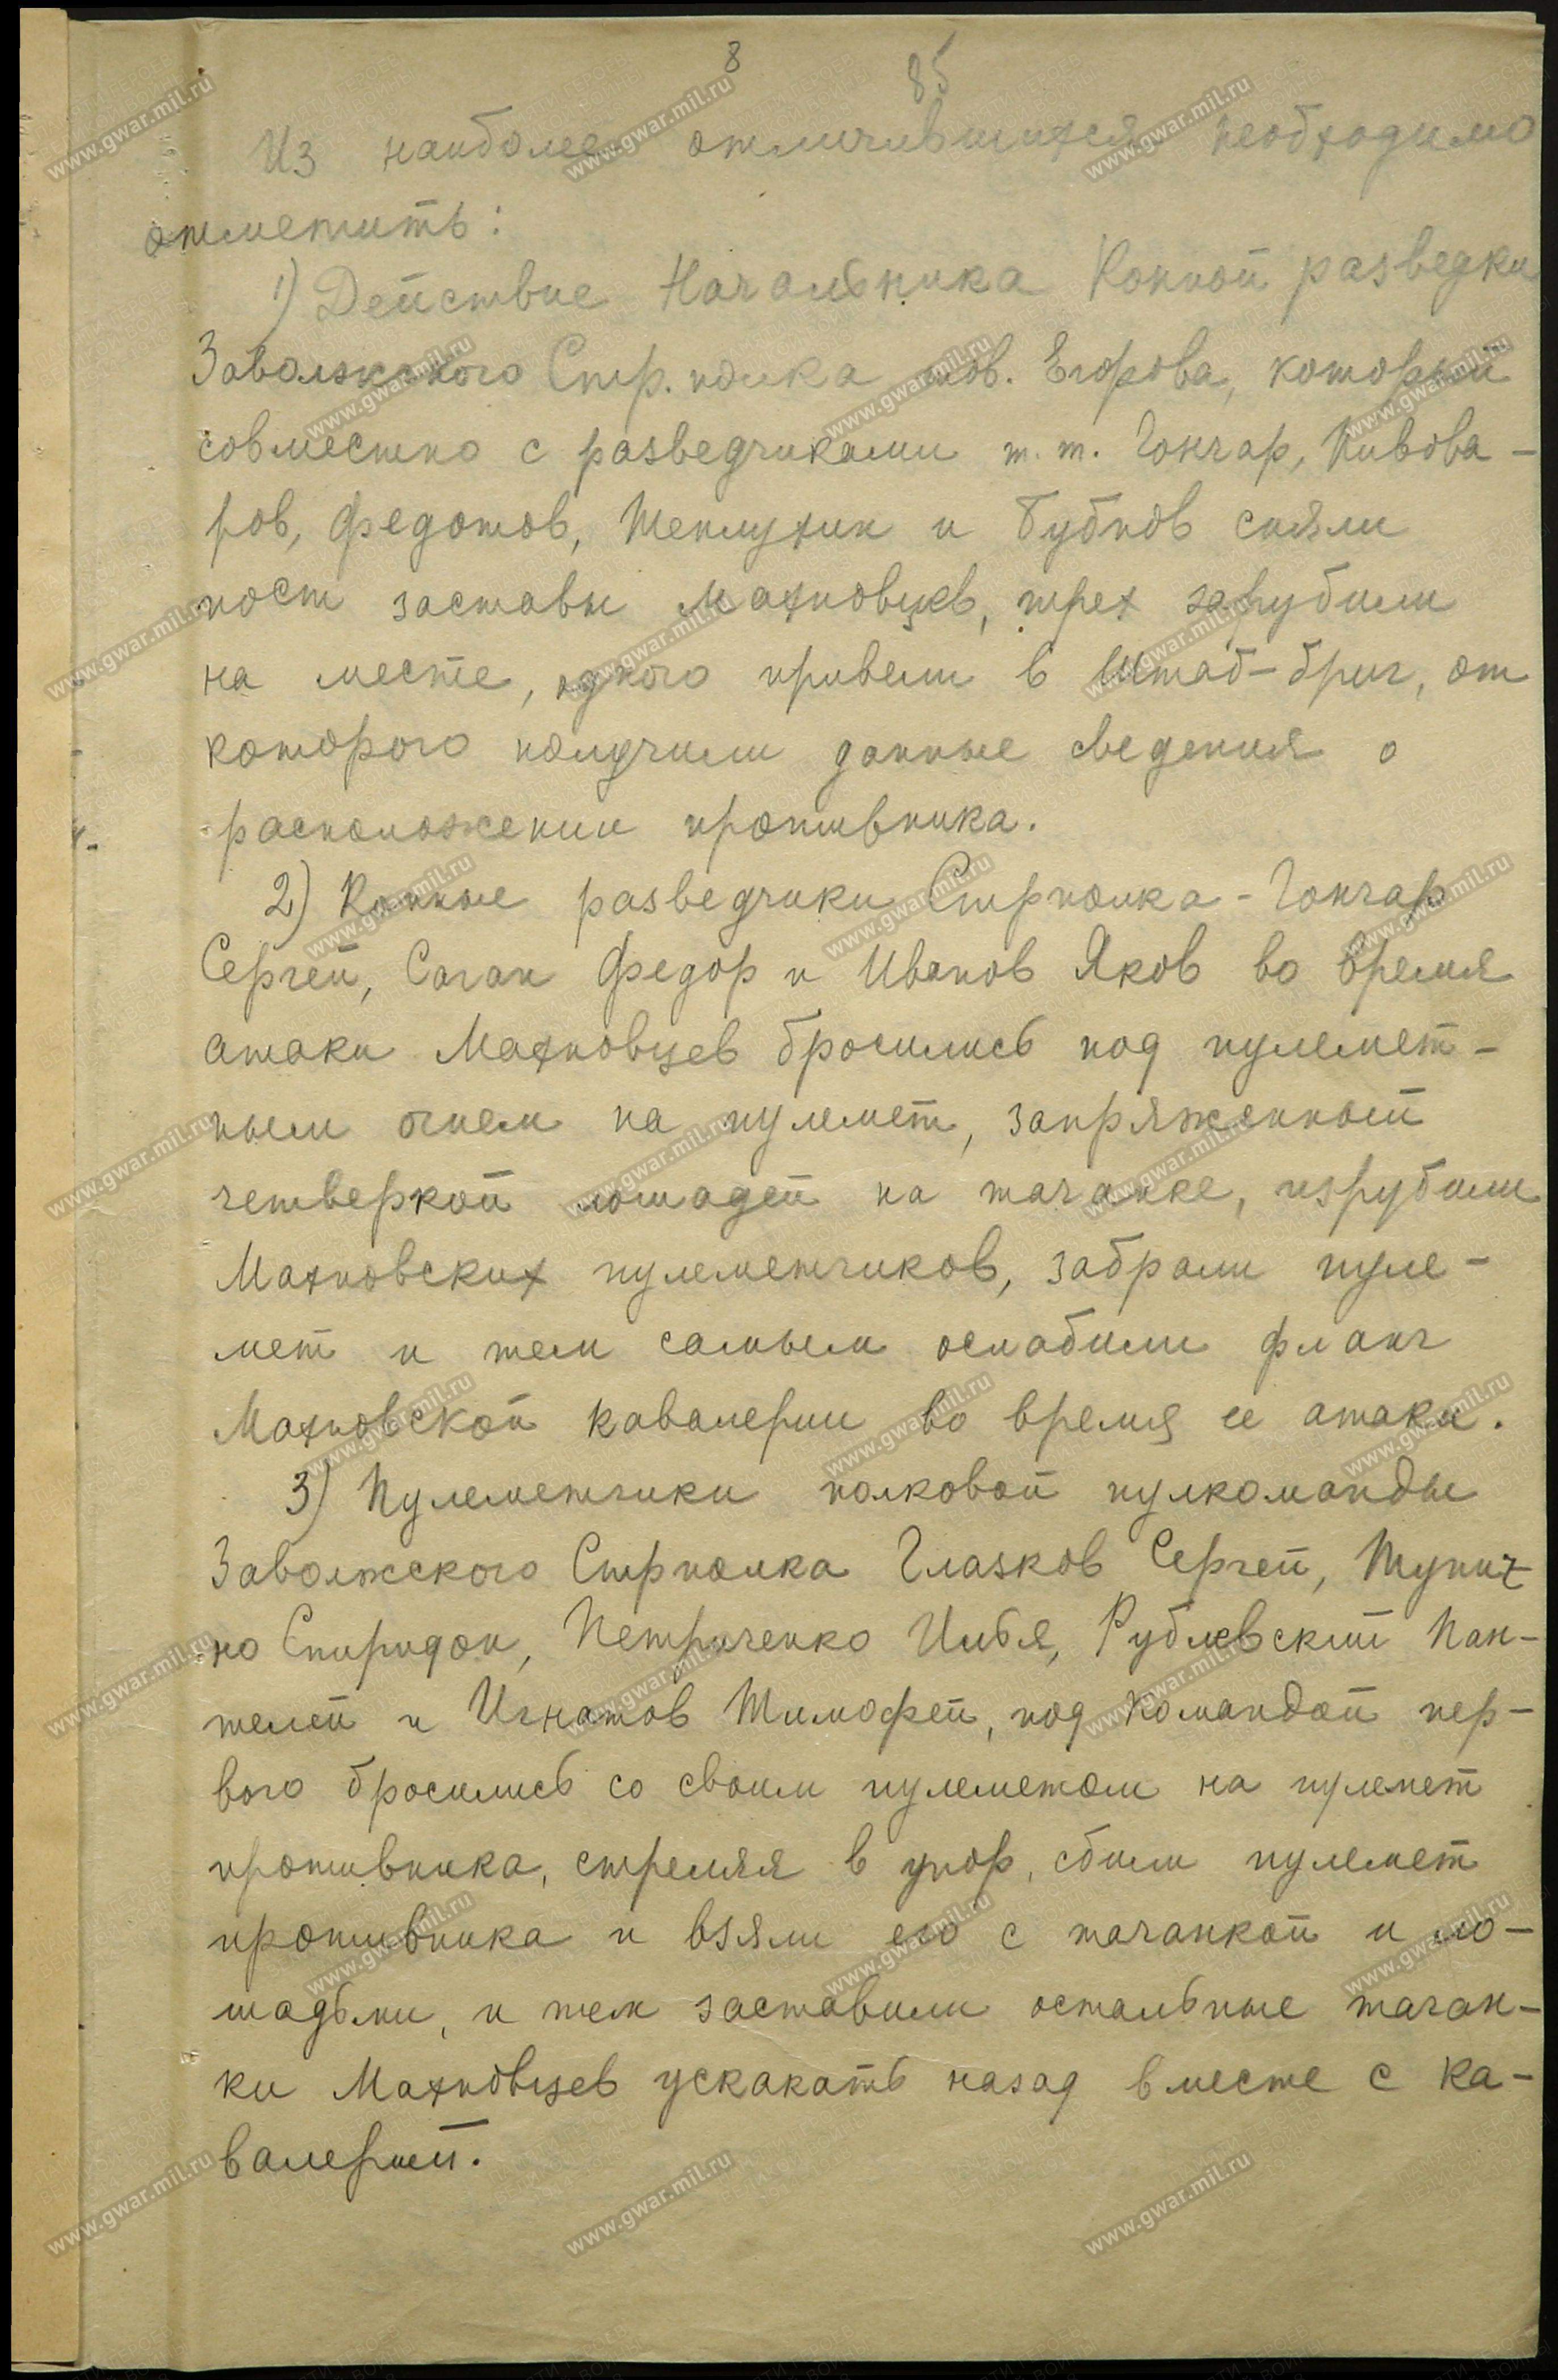 8 85
Из наиболее отличившихся необходимо
отметить:
1) Действие Начальника Конной разведки
Заволжского Стр. полка тов. Егорова, который
совместно с разведчиками т. т. Гончар, Пивова-
ров, Федотов, Теплухин и Бубнов сняли
пост заставы Махновцев, трех зарубили
на месте, одного привели в Штаб-бриг, от
которого получили данные сведения о
расположении противника.
2) Конные разведчики Стрполка - Гончар
Сергей, Саган Федор и Иванов Яков во время
атаки Махновцев бросились под пулемет-
ным огнем на пулемет, запряженный
четверкой лошадей на тачанке, изрубили
Махновских пулеметчиков, забрали пуле-
мет и тем самым ослабили фланг
Махновской кавалерии во время ее атаки.
3) Пулеметчики полковой пулкоманды
Заволжского Стрполка Глазков Сергей,
но Спиридон, Петриченко Илья, Рублевский Пан-
телей и Игнатов Тимофей, под командой пер-
вого бросились со своим пулеметом на пулемет
противника, стреляя в упор, сбили пулемет
противника и взяли его с тачанкой и ло-
шадьми, и тем заставили остальные тачан-
ки Махновцев ускакать назад вместе с ка-
валерией.
www.gwar.mil.ru